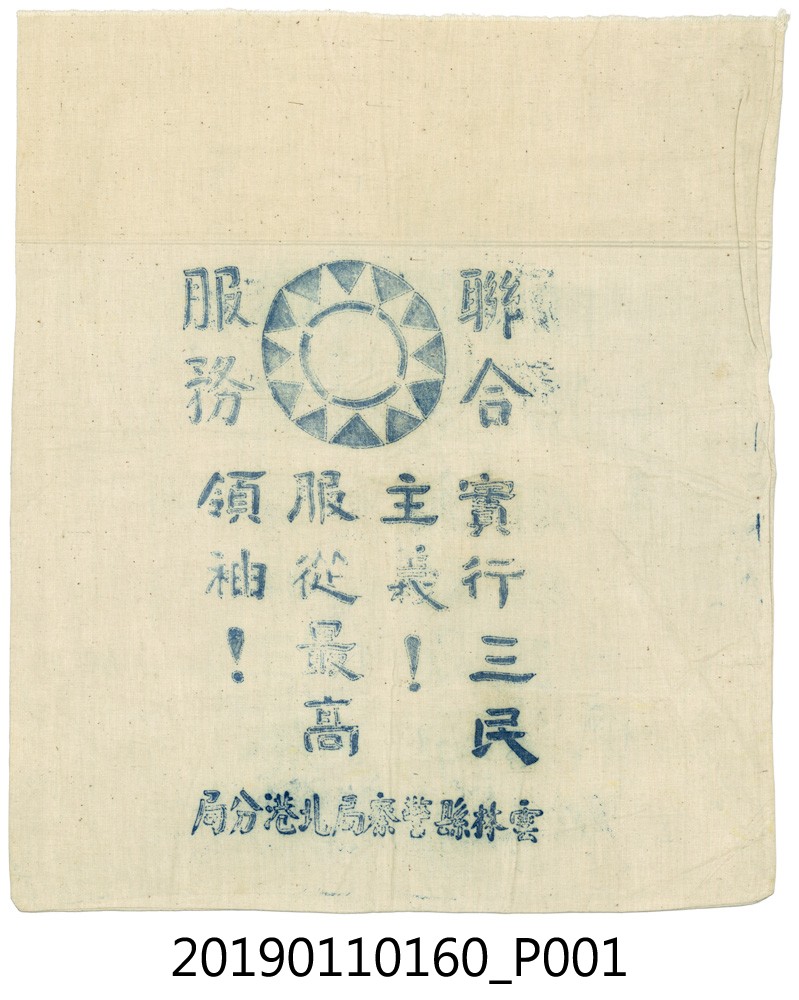 聯合
服務
實行三民
主義！
服從最高
領袖！
雲林縣警察局北港分局
20190110160_P001